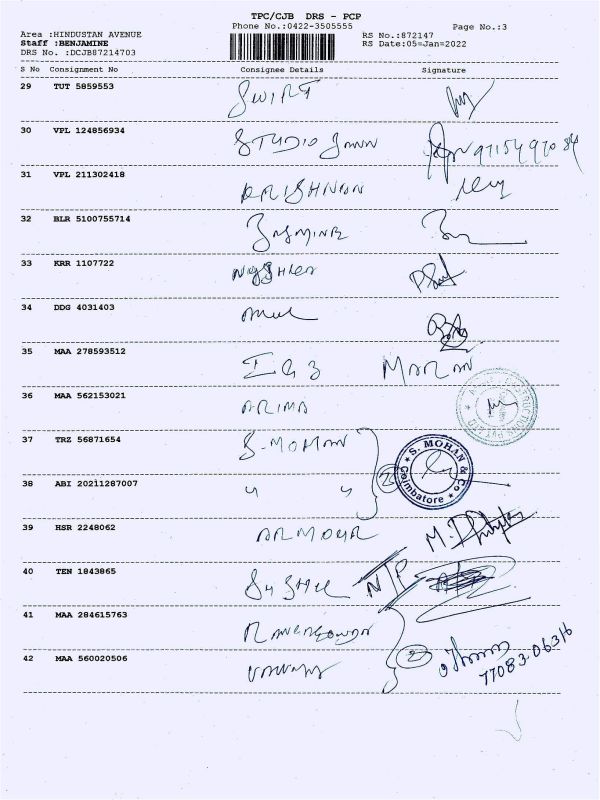 TPC/CJB DRS - PCP
Phone No.:0422-3505555 Page No.:3
Area :HINDUSTAN AVENUE RS No.:872147
Staff :BENJAMINE RS Date:05=Jan=2022
DRS No. :DCJB87214703
S No Consignment No Consignee Details Signature
29 TUT 5859553 SWIFT
30 VPL 124856934 STUDIO 9715497084
31 VPL 211302418 KRISHNAN
32 BLR 5100755714 JASMINE
33 KRR 1107722
34 DDG 4031403 Amul
35 MAA 278593512 MARAN
36 MAA 562153021 ARIMA
37 TRZ 56871654 S. MOHAN
S. MOHAN & Co
Coimbatore
38 ABI 20211287007 " " 2
39 HSR 2248062 ARMOUR
40 TEN 1843865
41 MAA 284615763
42 MAA 560020506 2
77083 06316